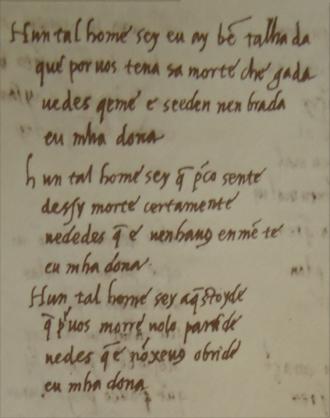 Hun tal home sey eu ay bē talhada
que por uos tena sa morte che gada
uedes quemē e seeden nenbrada
eu mha dona
hun tal home sey q̄ p̃co sente
dessy morte certamente
uededes q̄ ē uenhauos enmēte
eu mha dona
Hun tal home sey aq̄stoyde
q̄ p̃uos morre nolo
uedes q̄ē nōxeuos obride
eu mha dona